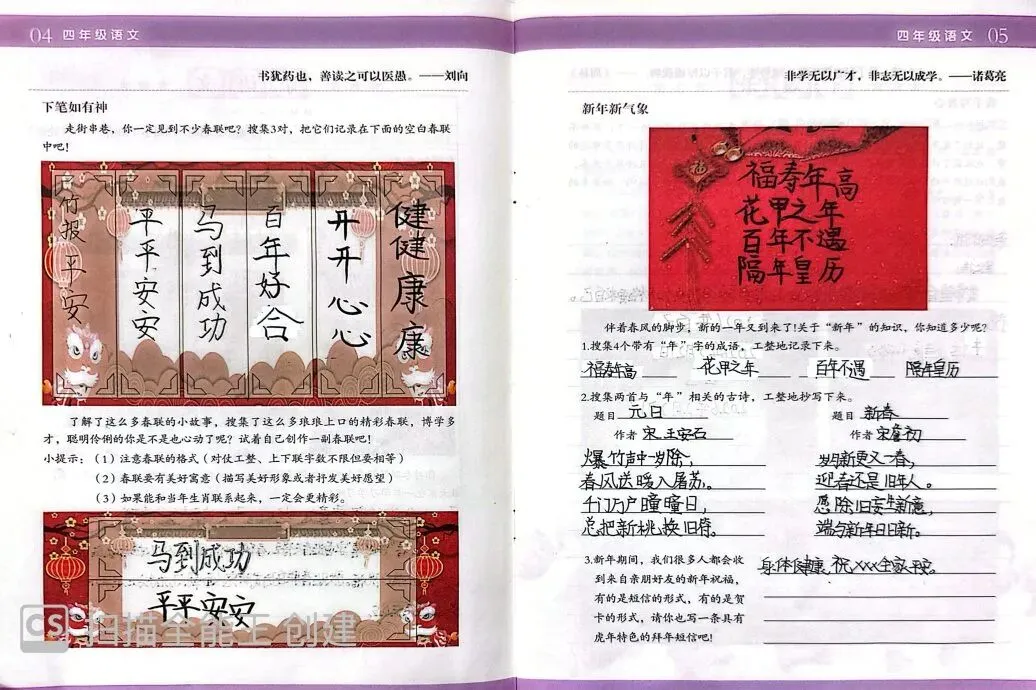 04 四年级语文
书犹药也，善读之可以医愚。——刘向
下笔如有神
走街串巷，你一定见到不少春联吧？搜集3对，把它们记录在下面的空白春联
中吧！
竹报平安
平平安安
马到成功
百年好合
开开心心
健健康康
了解了这么多春联的小故事，搜集了这么多琅琅上口的精彩春联，博学多
才，聪明伶俐的你是不是也心动了呢？试着自己创作一副春联吧！
小提示：（1）注意春联的格式（对仗工整、上下联字数不限但要相等）
（2）春联要有美好寓意（描写美好形象或者抒发美好愿望）
（3）如果能和当年生肖联系起来，一定会更精彩。
马到成功
平平安安
CS 扫描全能王 创建
四年级语文 05
非学无以广才，非志无以成学。——诸葛亮
新年新气象
福
福寿年高
花甲之年
百年不遇
隔年皇历
伴着春风的脚步，新的一年又到来了！关于“新年”的知识，你知道多少呢？
1.搜集4个带有“年”字的成语，工整地记录下来。
福寿年高 花甲之年 百年不遇 隔年皇历
2.搜集两首与“年”相关的古诗，工整地抄写下来。
题目 元日
作者 宋 王安石
爆竹声中一岁除，
春风送暖入屠苏。
千门万户曈曈日，
总把新桃换旧符。
题目 新春
作者 宋
岁更又一春，
迎春还是旧年人。
愿除旧妄生新意，
端与新年日日新。
3.新年期间，我们很多人都会收
到来自亲朋好友的新年祝福，
有的是短信的形式，有的是贺
卡的形式，请你也写一条具有
虎年特色的拜年短信吧！
身体健康，祝XXX全家